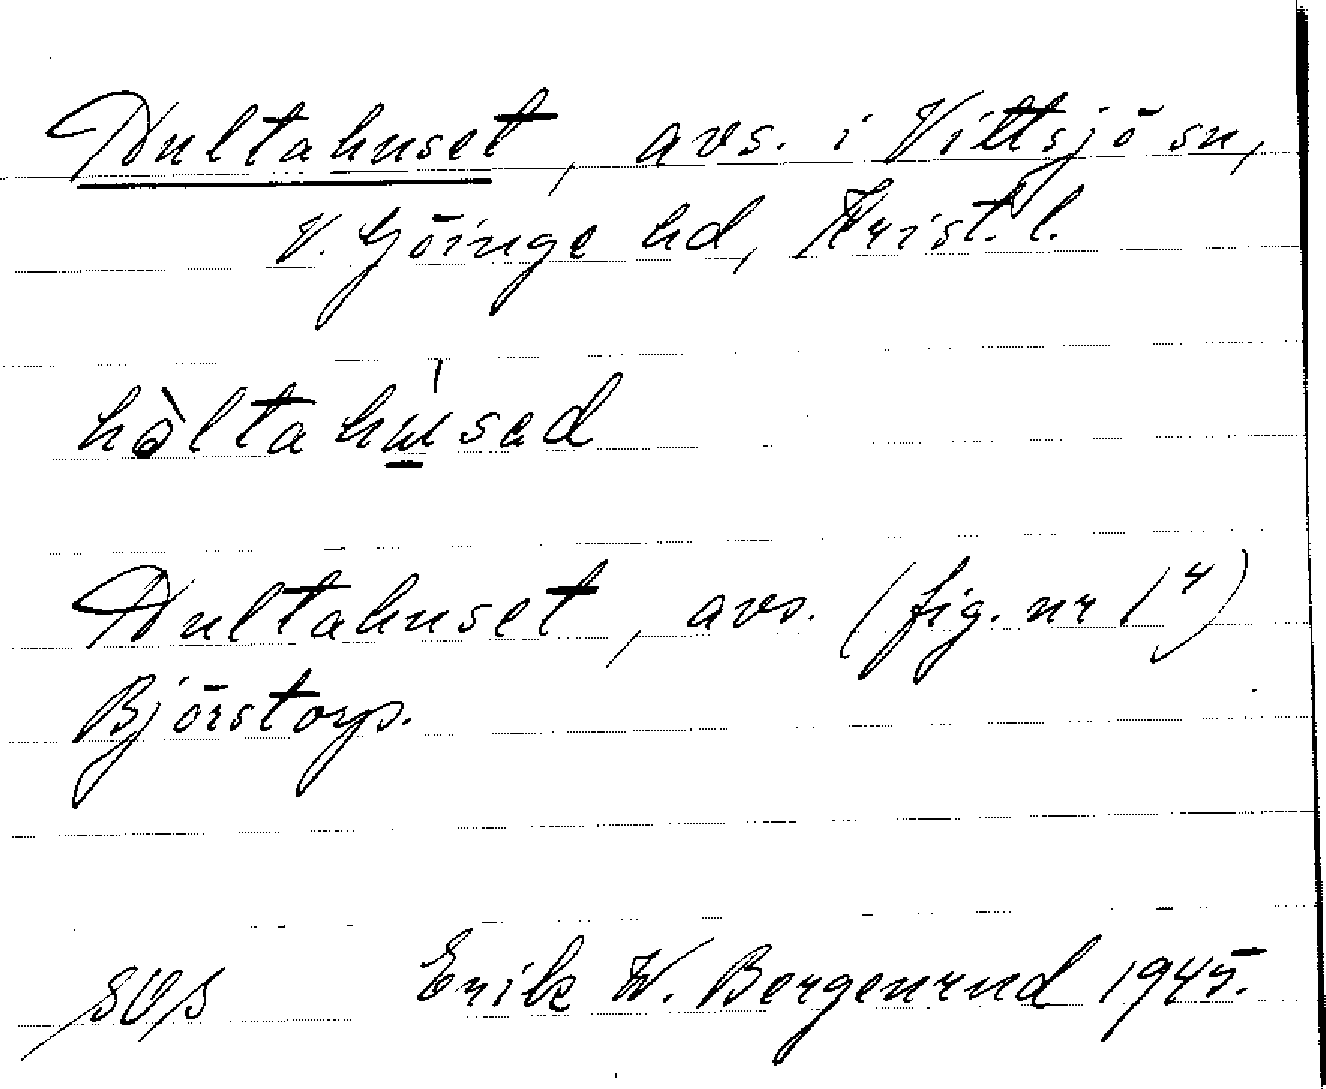 Hultahuset, avs. i Vittsjö sn,
V. Göinge hd, Krist. l.
hòltahu̠sad
Hultahuset, avs. (fig. nr 1⁴)
Björstorp.
SOS Erik W. Bergenrud 1945.